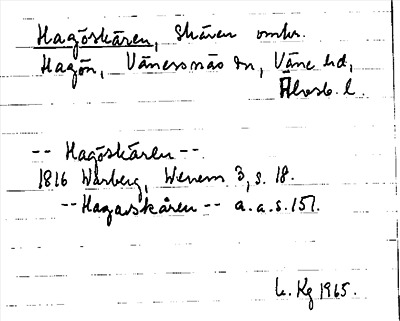 Hagöskären, skären omkr.
Hagön, Vänersnäs sn, Väne hd,
Älvsb. l.
-- Hagöskären --
1816 Warberg, Wenern 3, s. 18.
-- Hagaskären -- a.a.s. 151.
L. Kg 1965.